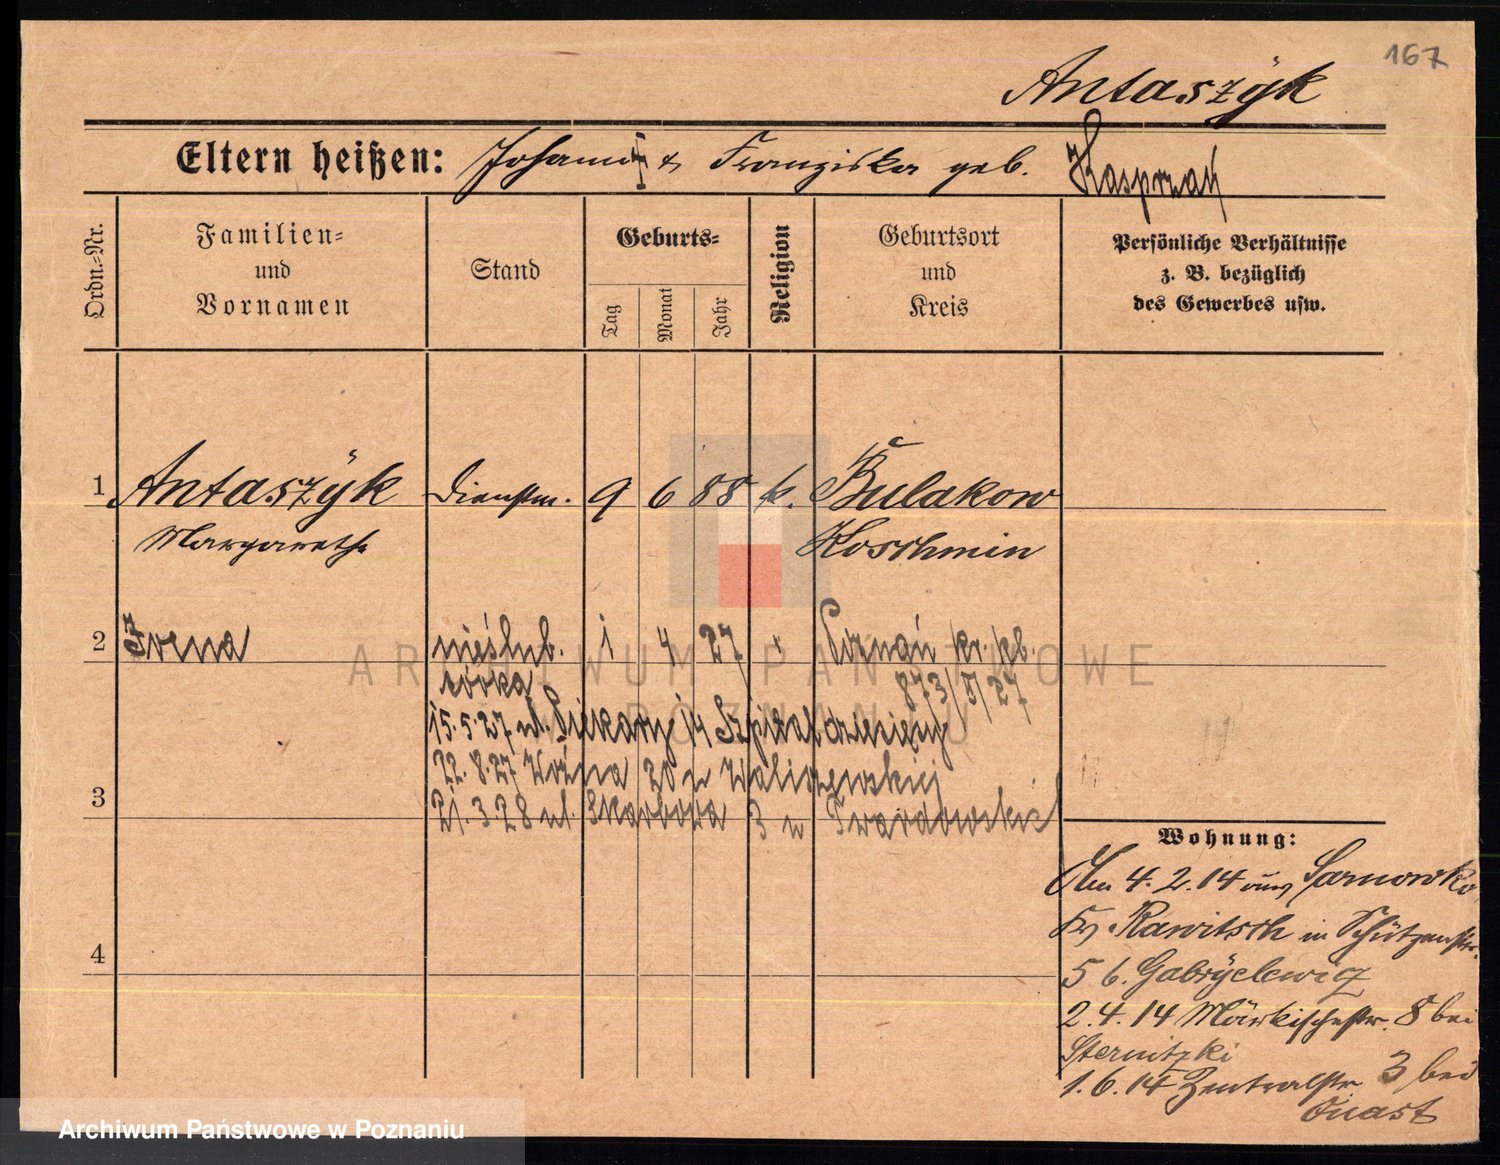 167
Antaszyk
Eltern heißen: Johann & Franziska geb. Kasprzak
Ordn.-Nr.
Familien- und Vornamen
Stand
Geburts-
Tag
Monat
Jahr
Religion
Geburtsort und Kreis
Persönliche Verhältnisse
z. B. bezüglich
des Gewerbes usw.
1 Antaszÿk Dienstm. 9 6 88 k. Bulakow
Margarethe Koschmin
2 Irena nieślub. 1 4 27 " Poznań kr. pb.
córka 873/V/27
15.5.27 ul. Piekary 14 Szpital dziecięcy
22.8.27 Woźna 20 u Waliszewskiej
3
21.3.28 ul. Skarbowa 3 u Twardowskie
Wohnung:
Am 4.2.14 aus Sarnowko
Kr Rawitsch in Schützenstr.
5 b. Gabrÿelewicz
4
2.4.14 Märkischestr. 8 bei
Sternitzki
1.6.14 Zentralstr 3 bei
Quast
ARCHIWUM PAŃSTWOWE
W POZNANIU
Archiwum Państwowe w Poznaniu